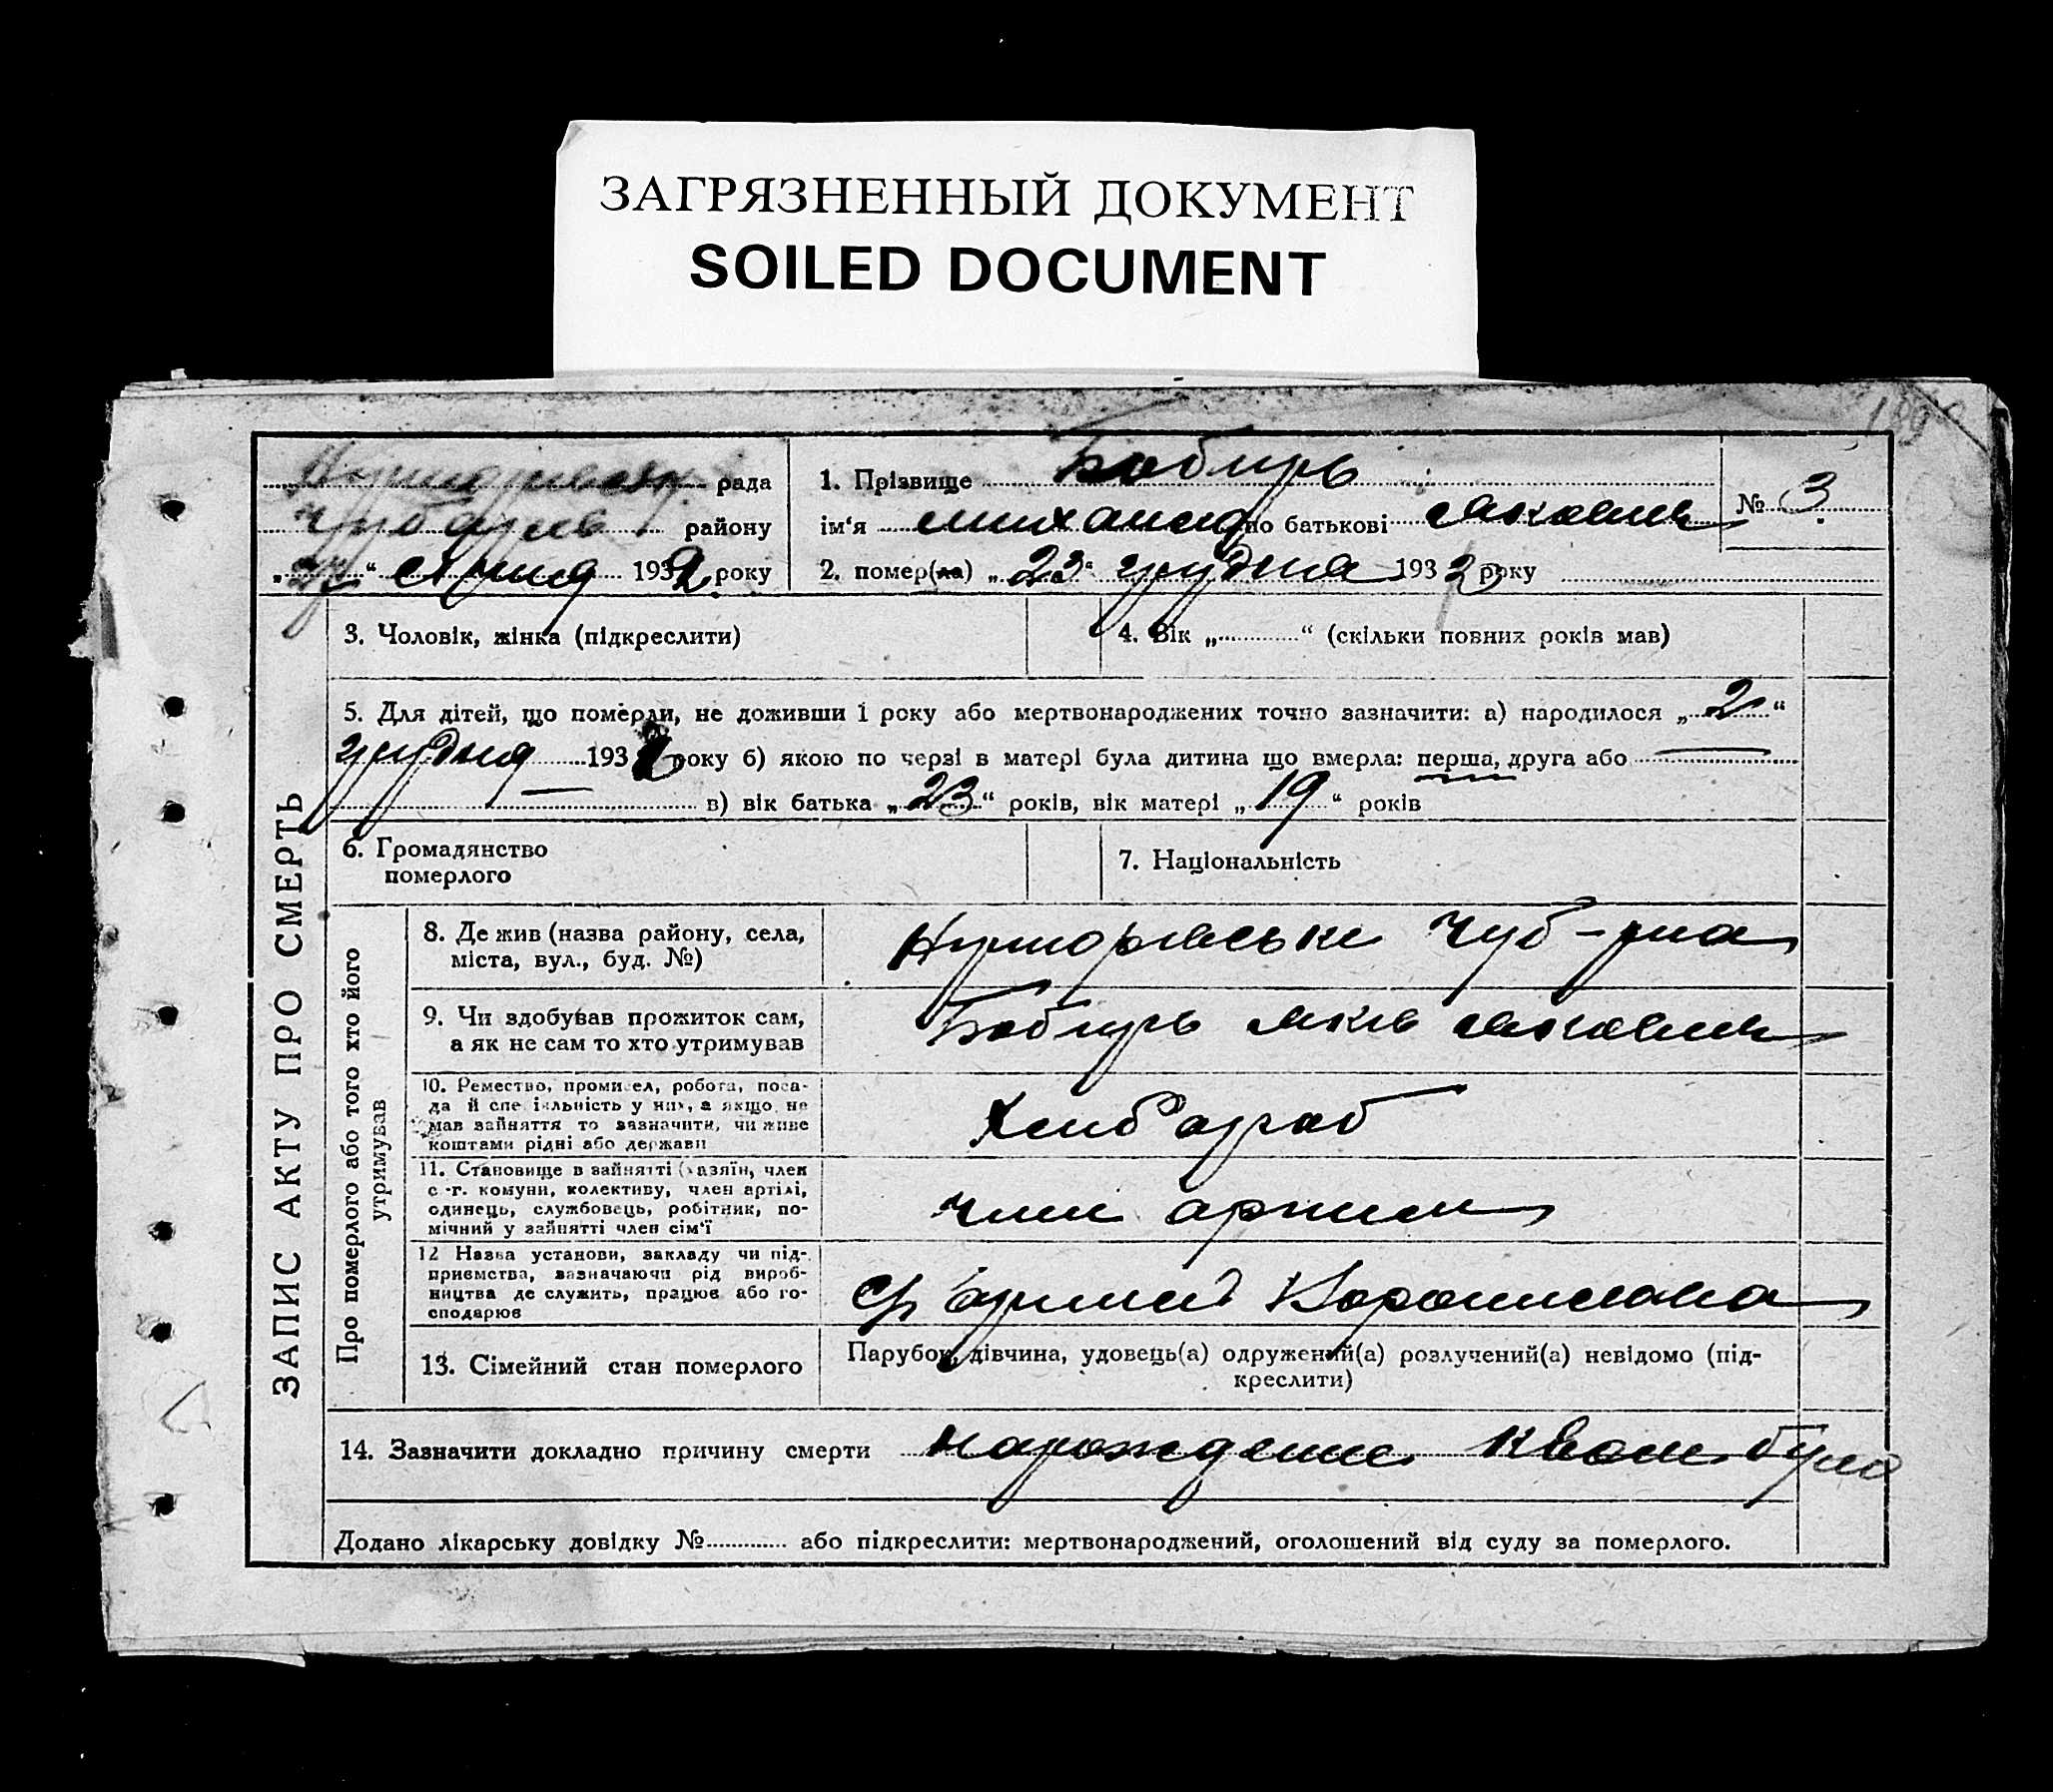 ЗАГРЯЗНЕННЫЙ ДОКУМЕНТ
SOILED DOCUMENT
рада
району
1932 року
1. Прізвище Бобирь
ім'я Михаил по батькові Яковлев
№ 3
2. помер(ла) „23" грудня 193 року
3. Чоловік, жінка (підкреслити)
4. Вік „............" (скільки повних років мав)
5. Для дітей, що померли, не доживши 1 року або мертвонароджених точно зазначити: а) народилося „2"
грудня 193 року б) якою по черзі в матері була дитина що вмерла: перша, друга або —
— в) вік батька „23" років, вік матері „19" років
6. Громадянство
померлого
7. Національність
ЗАПИС АКТУ ПРО СМЕРТЬ
Про померлого або того хто його
утримував
8. Де жив (назва району, села,
міста, вул., буд. №)
9. Чи здобував прожиток сам,
а як не сам то хто утримував
Бобирь Яків
10. Ремество, промисел, робота, поса-
да й спеціяльність у них, а якщо не
мав зайняття то зазначити, чи живе
коштами рідні або держави
Хлібороб
11. Становище в зайнятті (хазяїн, член
с.-г. комуни, колективу, член артілі,
одинець, службовець, робітник, по-
мічний у зайнятті член сім'ї
член артили
12 Назва установи, закладу чи під-
приємства, зазначаючи рід вироб-
ництва де служить, працює або го-
сподарює
Ворошилова
13. Сімейний стан померлого
Парубок, дівчина, удовець(а) одружений(а) розлучений(а) невідомо (під-
креслити)
14. Зазначити докладно причину смерти
Додано лікарську довідку №............ або підкреслити: мертвонароджений, оголошений від суду за померлого.